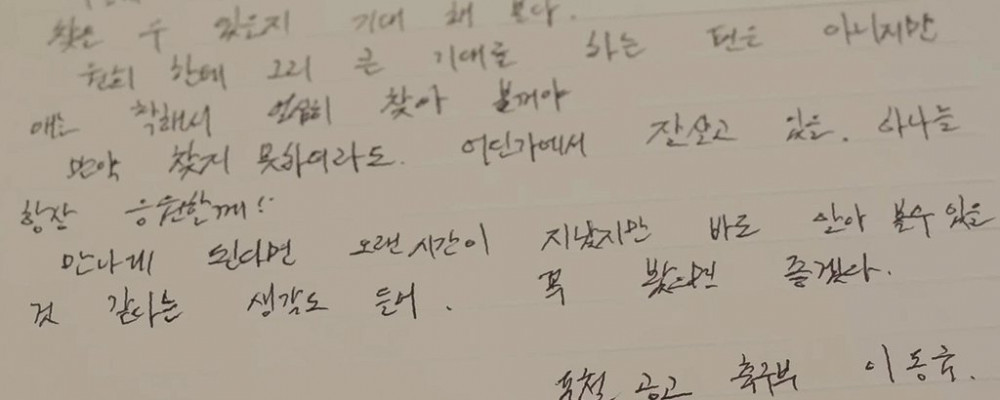 찾을 수 있을지 기대 해 본다.
한테 그리 큰 기대를 하는 편은 아니지만
애는 착해서 열심히 찾아 볼꺼야
만약 찾지 못하더라도. 어딘가에서 잘살고 있을. 하나를
항상 응원할께!
만나게 된다면 오랜 시간이 지났지만 바로 알아 볼수 있을
것 같다는 생각도 들어. 꼭 봤으면 좋겠다.
공고 축구부 이동국.